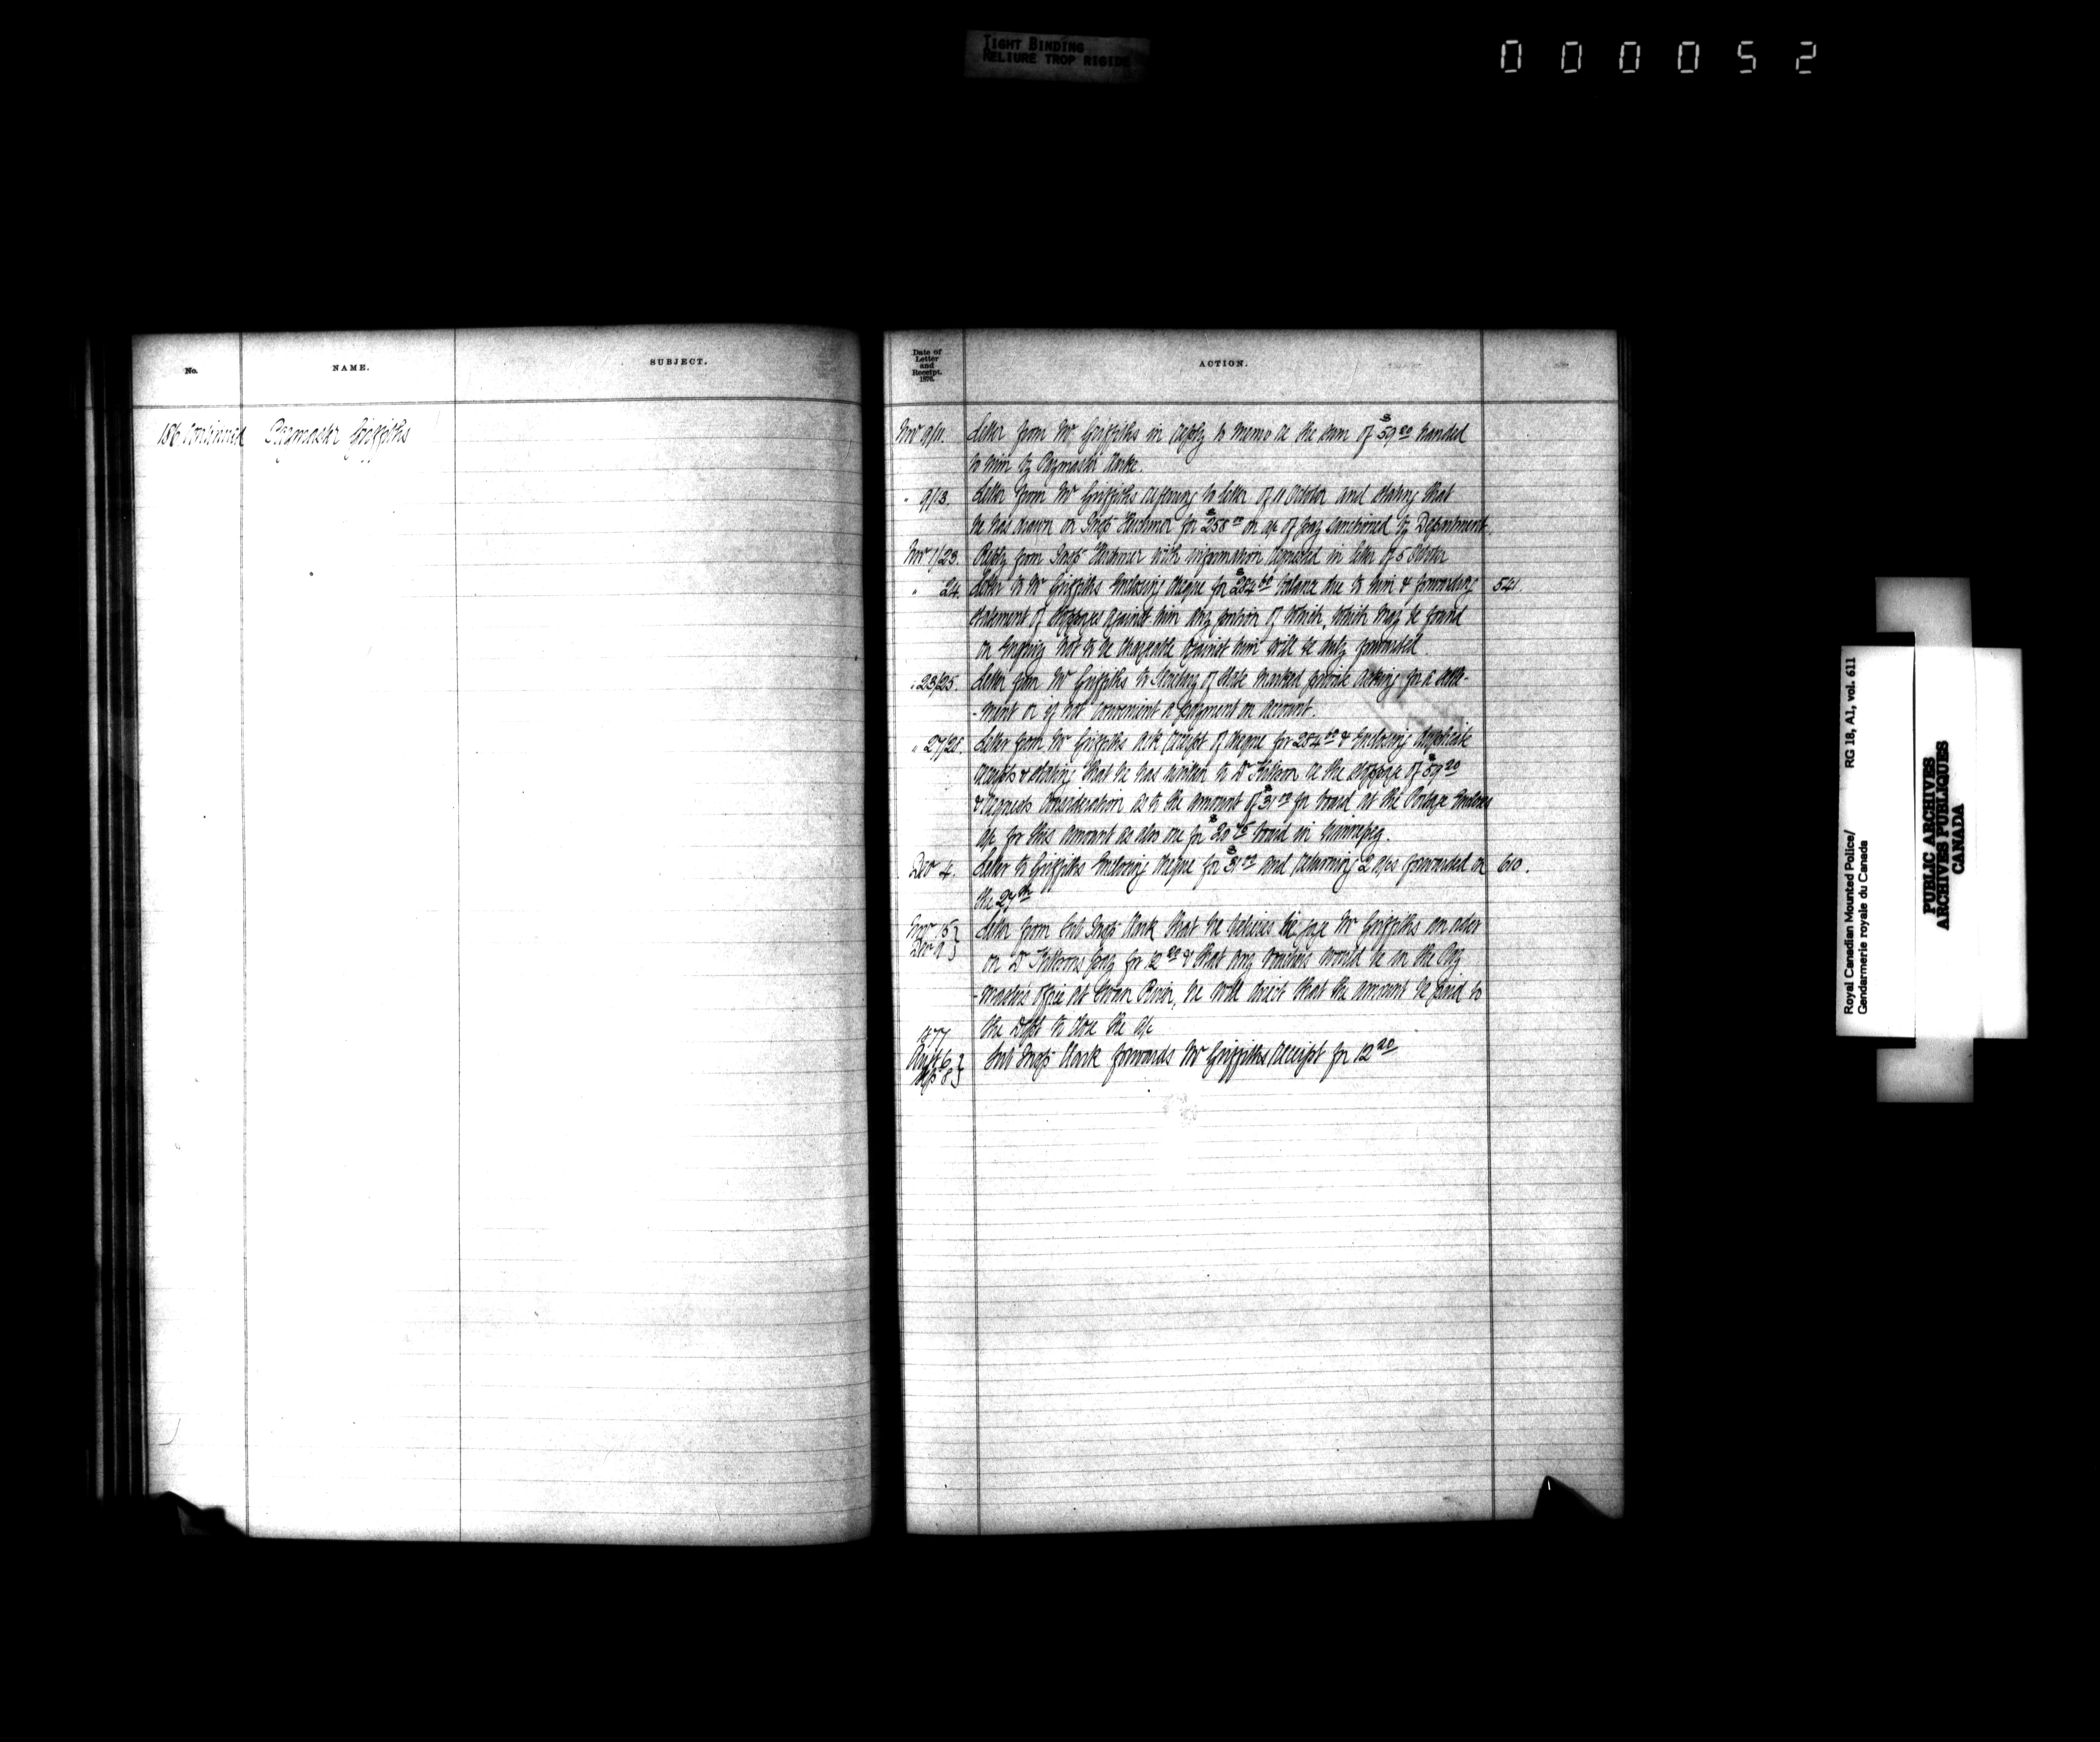 TIGHT BINDING
RELIURE TROP RIGIDE
000052
No.
NAME.
SUBJECT.
186 Continued Paymaster Griffiths
Date of
Letter
and
Receipt.
1876.
ACTION.
Nov 9/11. Letter from Mr Griffiths in reply to memo re the sum of $59 20 handed
to him by Paymaster Clarke.
" 9/13. Letter from Mr Griffiths referring to letter of 11 October and stating that
he has drawn on Insp Herchmer for $258 on a/c of pay sanctioned by Department.
Nov 1/23. Reply from Insp Herchmer with information requested in letter of 5 October
" 24. Letter to Mr Griffiths enclosing cheque for $254 60 balance due to him & forwarding 541.
statement of stoppages against him any portion of which, which may be found
on enquiry not to be chargeable against him will be duly forwarded.
" 23/25. Letter from Mr Griffiths to Secretary of State marked private asking for a settle-
-ment or if not convenient a payment on account.
" 27/28. Letter from Mr Griffiths ack receipt of cheque for 254 60 & enclosing duplicate
receipts & stating that he has written to Dr Kittson re the stoppage of $59 20
& requests consideration as to the amount of $31 for board at the Portage encloses
a/c for this amount as also one for $20 board in Winnipeg.
Dec 4. Letter to Griffiths enclosing cheque for $31 and returning 2 a/cs forwarded on 610.
the 27th
Nov 15 }
Dec 9 } Letter from Sub Insp Clark that he believes he gave Mr Griffiths an order
on Dr Kittsons pay for 12 20 & that any vouchers would be in the Pay
-master's office at Swan River, he will direct that the amount be paid to
the Dept to close the a/c
1877
Augt 6 }
Sep 8 } Sub Insp Clark forwards Mr Griffiths receipt for 12 20
Royal Canadian Mounted Police/ RG 18, A1, vol. 611
Gendarmerie royale du Canada
PUBLIC ARCHIVES
ARCHIVES PUBLIQUES
CANADA